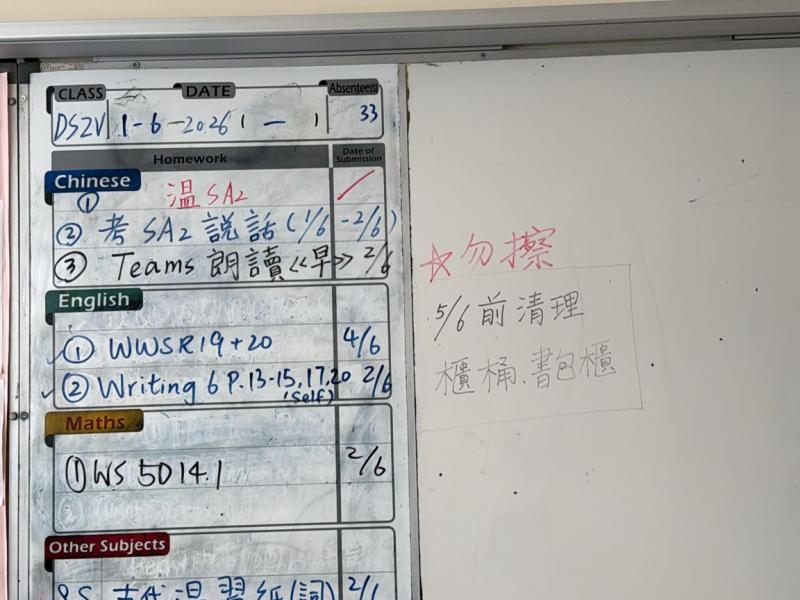 CLASS DATE Absentee(s)
1-6-2026 1 — 1 33
Homework Date of Submission
Chinese
① 温 SA2
② 考 SA2 説話 (1/6 -2/6)
③ Teams 朗讀 《早》 2/6
English
① WWSR19+20 4/6
② Writing 6 P.13-15,17,20 2/6
(self)
Maths
① WS 5D14.1 2/6
Other Subjects
古代温習紙(詞) 2/
☆勿擦
5/6 前清理
櫃桶、書包櫃